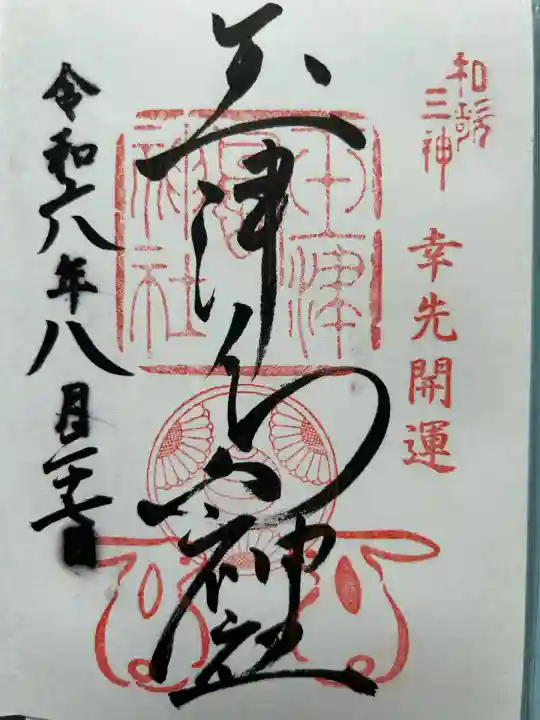 和歌
三神
幸先開運
玉津島神社
玉津
神社
令和六年八月二十七日